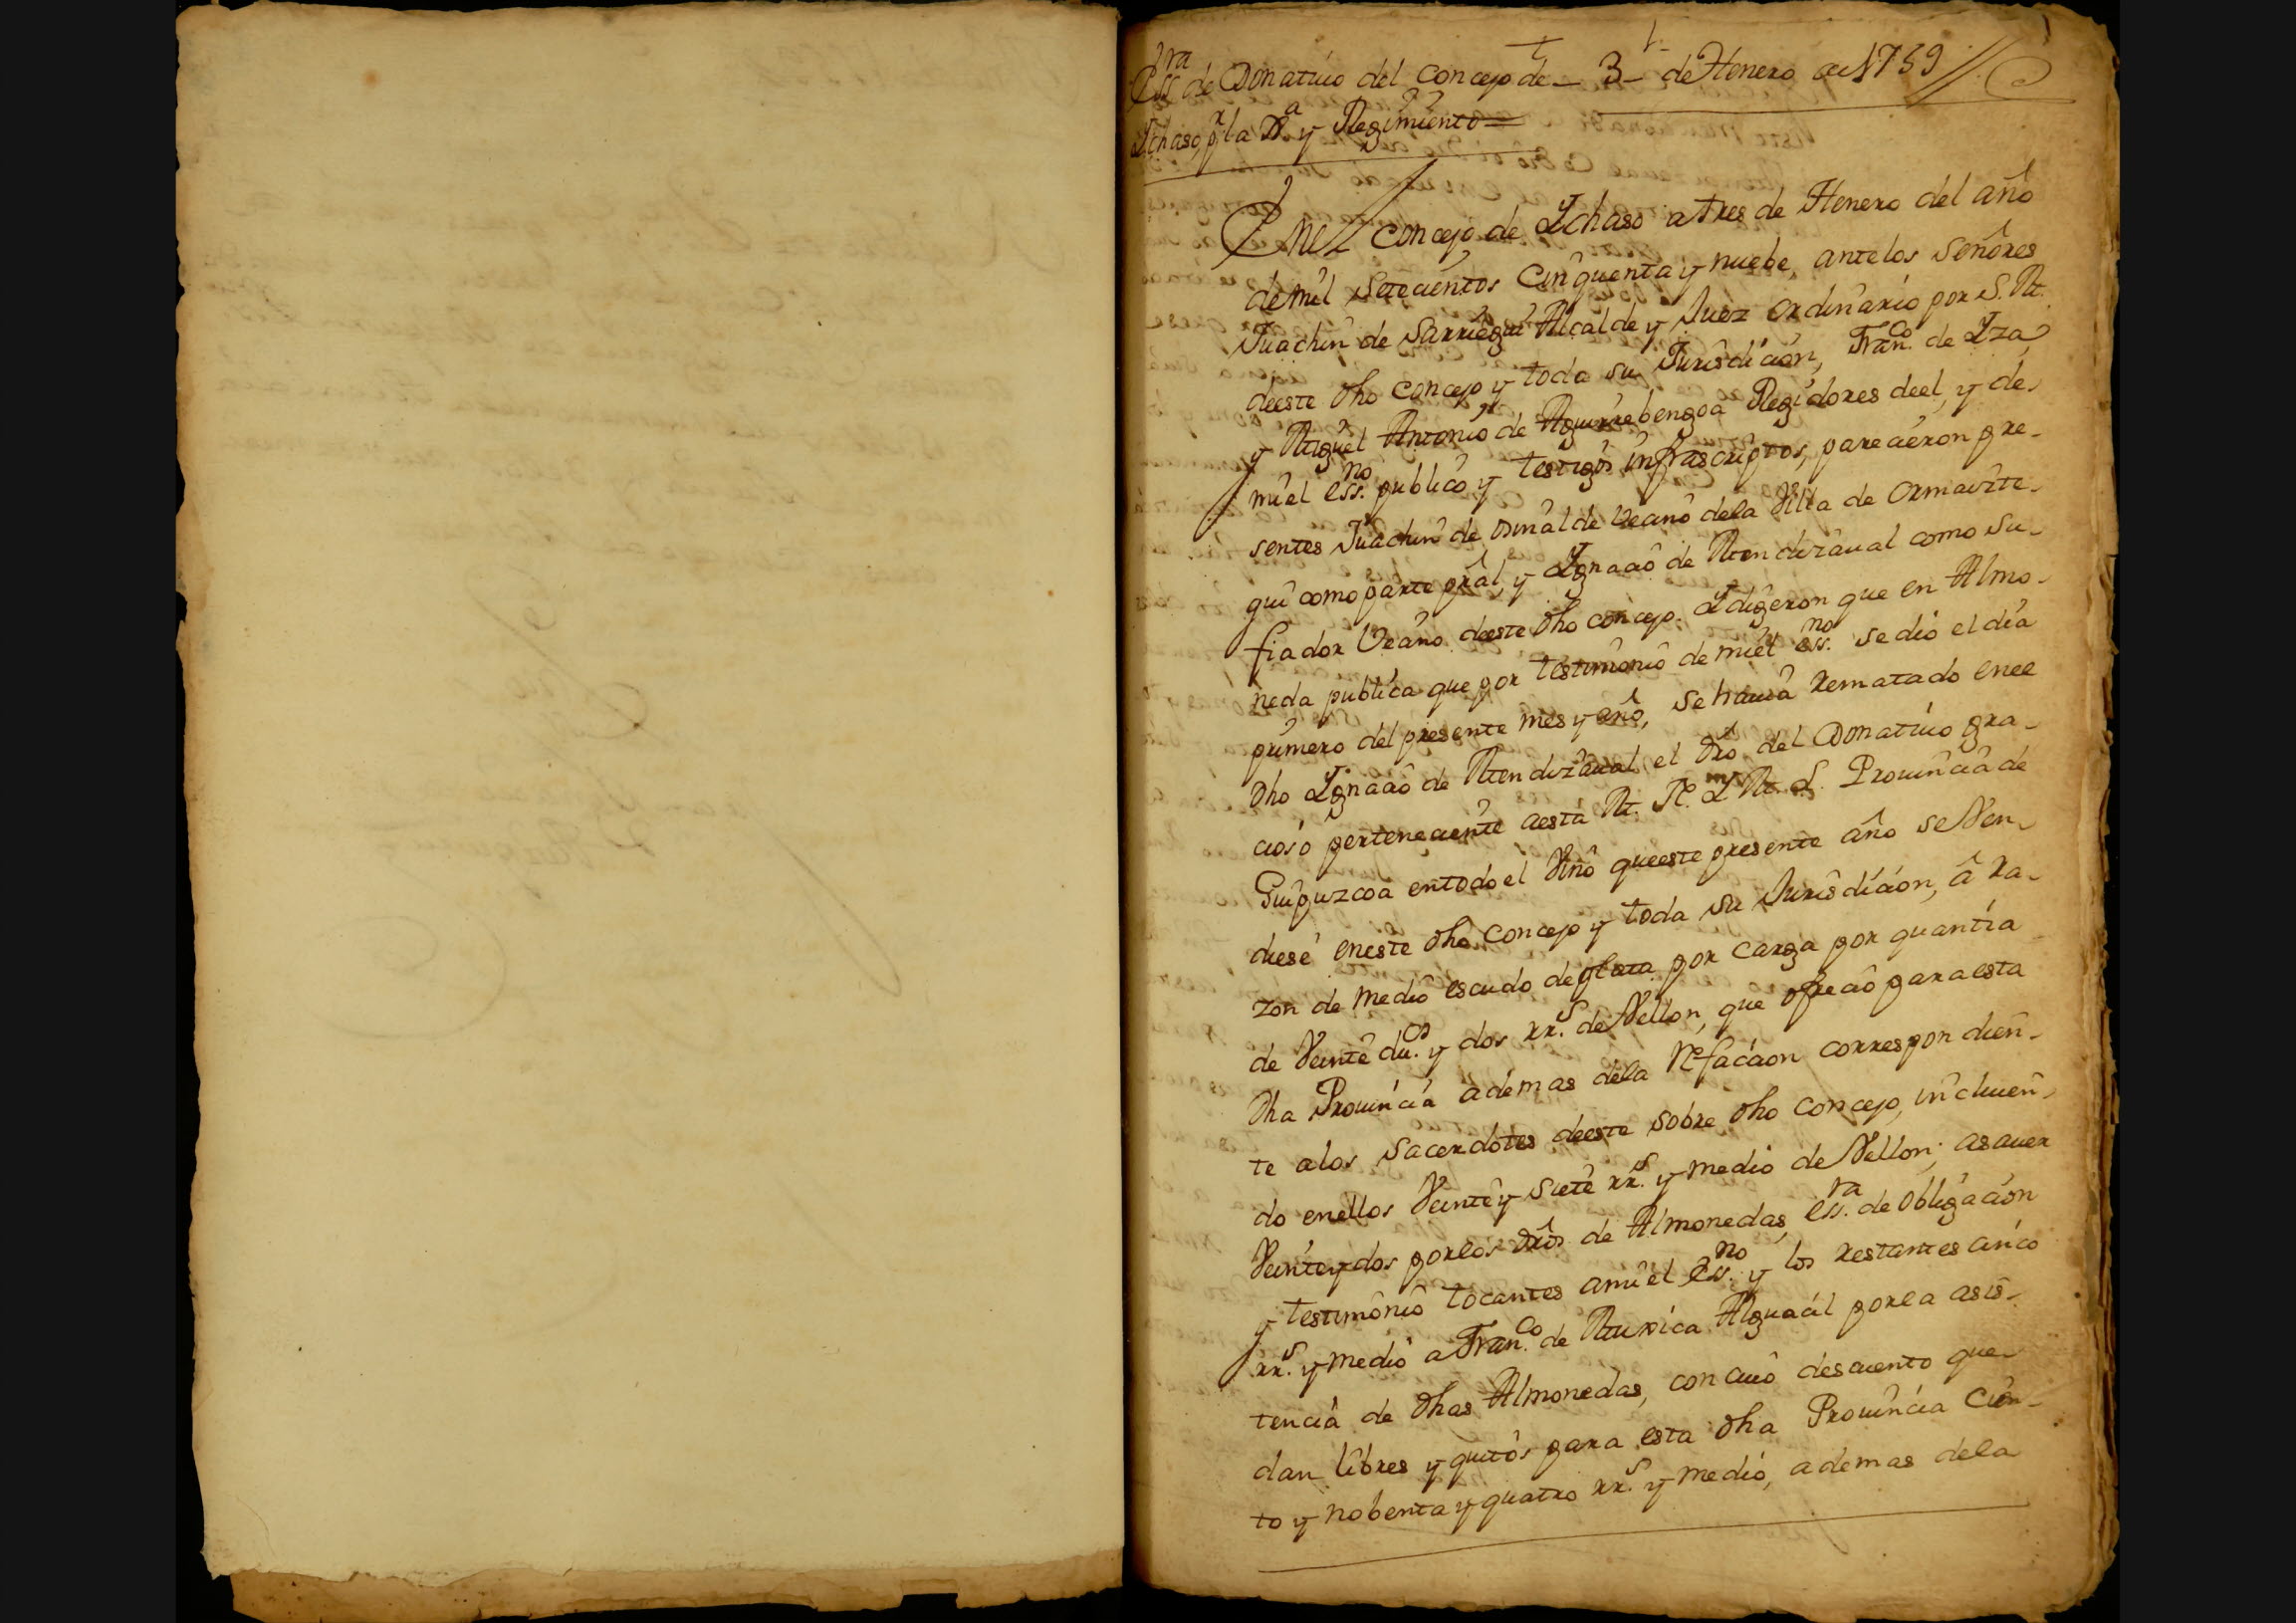 1
Essra de Donativo del Concejo de – 3 – de Henero de 1759 //
Ychaso, pr la Pa y Regimiento =
En el Concejo de Ychaso a tres de Henero del año
de mil Setecientos Cinquenta y nuebe, ante los Señores
Juachin de Sarriegui Alcalde y Juez ordinario por S. M.
de este dho Concejo y toda su Jurisdicion, Franco. de Yza
y Miguel Antonio de Aguirrebengoa Regidores de el, y de
mi el essno. publico y testigos infrascriptos, parecieron pre-
sentes Juachin de Osinalde Vecino de la Villa de Ormaizte-
gui como parte pral, y Ygnacio de Mendizaual como su
fiador Vecino de este dho Concejo. Y digeron que en Almo-
neda publica que por testimonio de mi el essno. se dio el dia
primero del presente mes y año, se hauia rematado en el
dho Ygnacio de Mendizaual, el dro del Donativo gra-
cioso perteneciente a esta M. N. Y M. L. Prouincia de
Guipuzcoa en todo el Vino que este presente año se Ven-
diese en este dho Concejo y toda su Jurisdicion, â ra-
zon de medio escudo de plata por carga por quantia
de Veinte du.os y dos rr.s de Vellon, que ofrecio para esta
dha Prouincia ademas de la Refacion correspondien-
te a los Sacerdotes de este sobre dho Concejo, incluien-
do en ellos Veinte y siete rr.s y medio de Vellon; asauer
Veinte y dos por los dros de Almonedas, ess.ra de obligacion
y testimonio tocantes a mi el Ess.no y los restantes cinco
rr.s y medio a Fran.co de Muxica Alguacil por la asis-
tencia de dhas Almonedas, con cuio descuento que-
dan libres y quitos para esta dha Prouincia Cien-
to y nobenta y quatro rr.s y medio, ademas de la